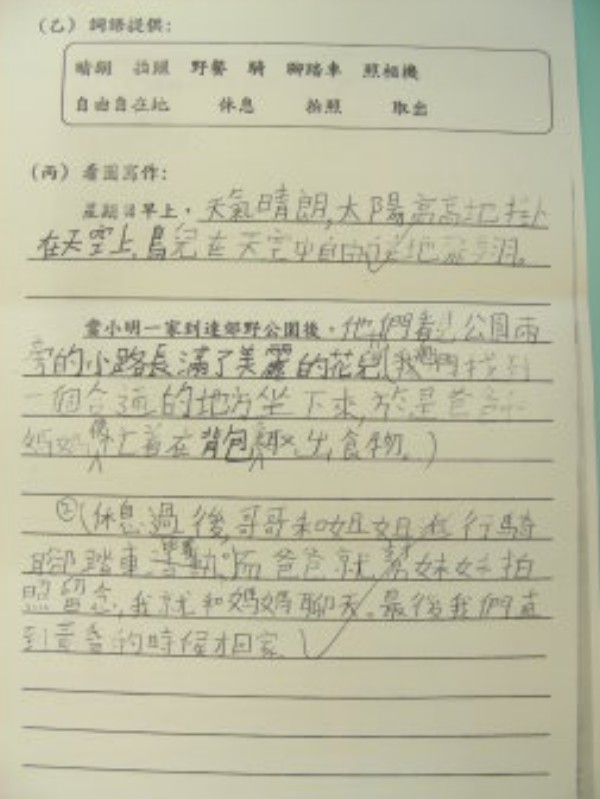 (乙) 詞語提供:
晴朗 拍照 野餐 騎 腳踏車 照相機
自由自在地 休息 拍照 取出
(丙) 看圖寫作:
星期日早上,天氣晴朗,太陽高高地掛
在天空上,鳥兒在天空中自由 地
當小明一家到達郊野公園後,他們看見公園兩
旁的小路長滿了美麗的花兒(我們找到
一個合適的地方坐下來,於是爸爸和
媽媽便忙着在背包 取出食物。)
②(休息過後,哥哥和姐姐進行騎
腳踏車 而爸爸就幫妹妹拍
照留念,我就和媽媽聊天。最後我們直
到黃昏的時候才回家